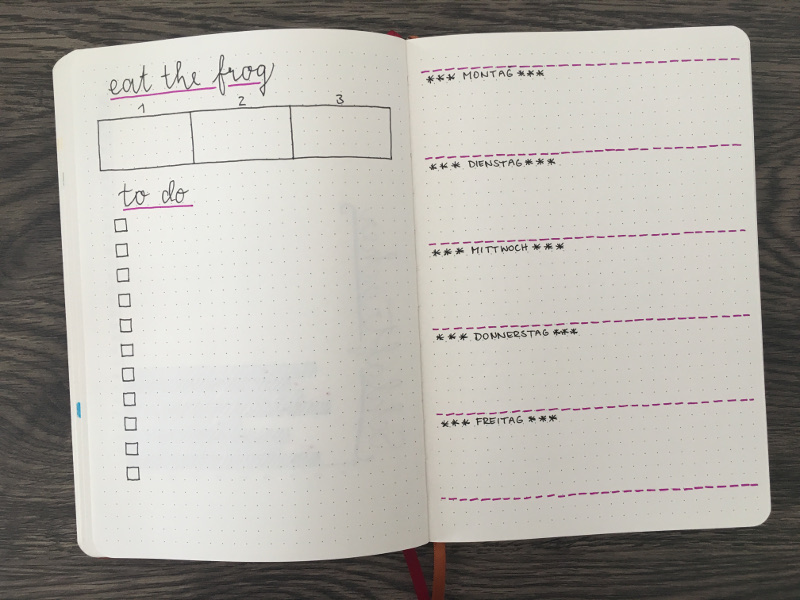 eat the frog
1 2 3
to do
*** MONTAG ***
*** DIENSTAG ***
*** MITTWOCH ***
*** DONNERSTAG ***
*** FREITAG ***